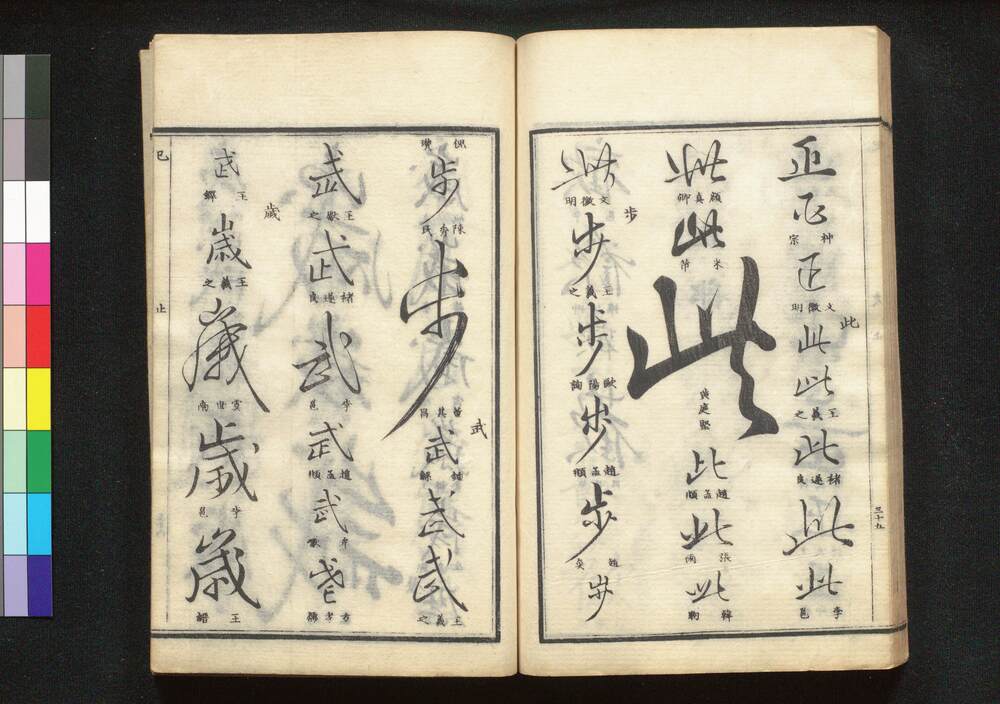 三十九
正
正
神宗
正
文徴明
此
此
此
王羲之
此
褚遂良
此
此
李邕
此
顔真卿
此
米芾
此
黄庭堅
此
趙孟頫
此
張雨
此
韓駒
此
文徴明
步
步
王羲之
步
歐陽詢
步
趙孟頫
步
趙奕
步
倪瓚
步
陳秀民
步
董其昌
武
武
鍾繇
武
武
王羲之
武
王獻之
武
褚遂良
武
李邕
武
趙孟頫
武
武
方孝孺
武
王鐸
歲
歲
王羲之
歲
虞世南
歲
李邕
歲
巳
止